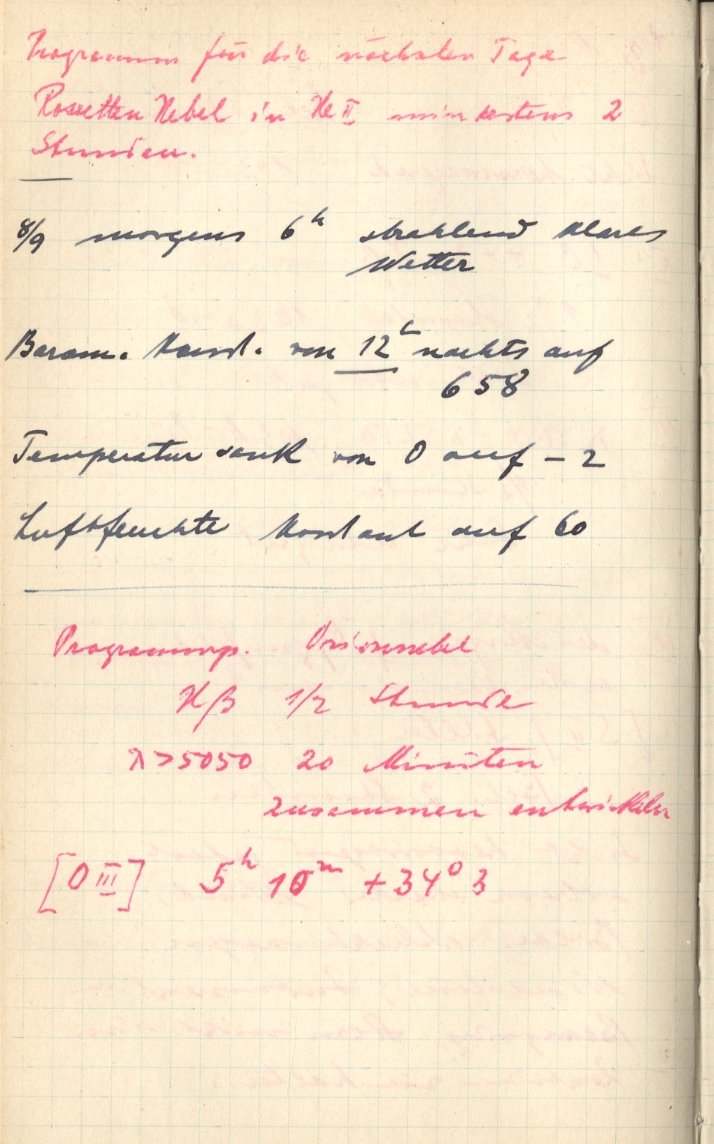 Programm für die nächsten Tage
Rosetten Nebel in He II mindestens 2
Stunden.
8/9 morgens 6h strahlend klares
Wetter
Barom. konst. von 12h nachts auf
658
Temperatur sank von 0 auf - 2
Luftfeuchte konstant auf 60
Programmp. Orionnebel
Hβ 1/2 Stunde
λ>5050 20 Minuten
zusammen entwickeln
[O III] 5h 10m +34° 3